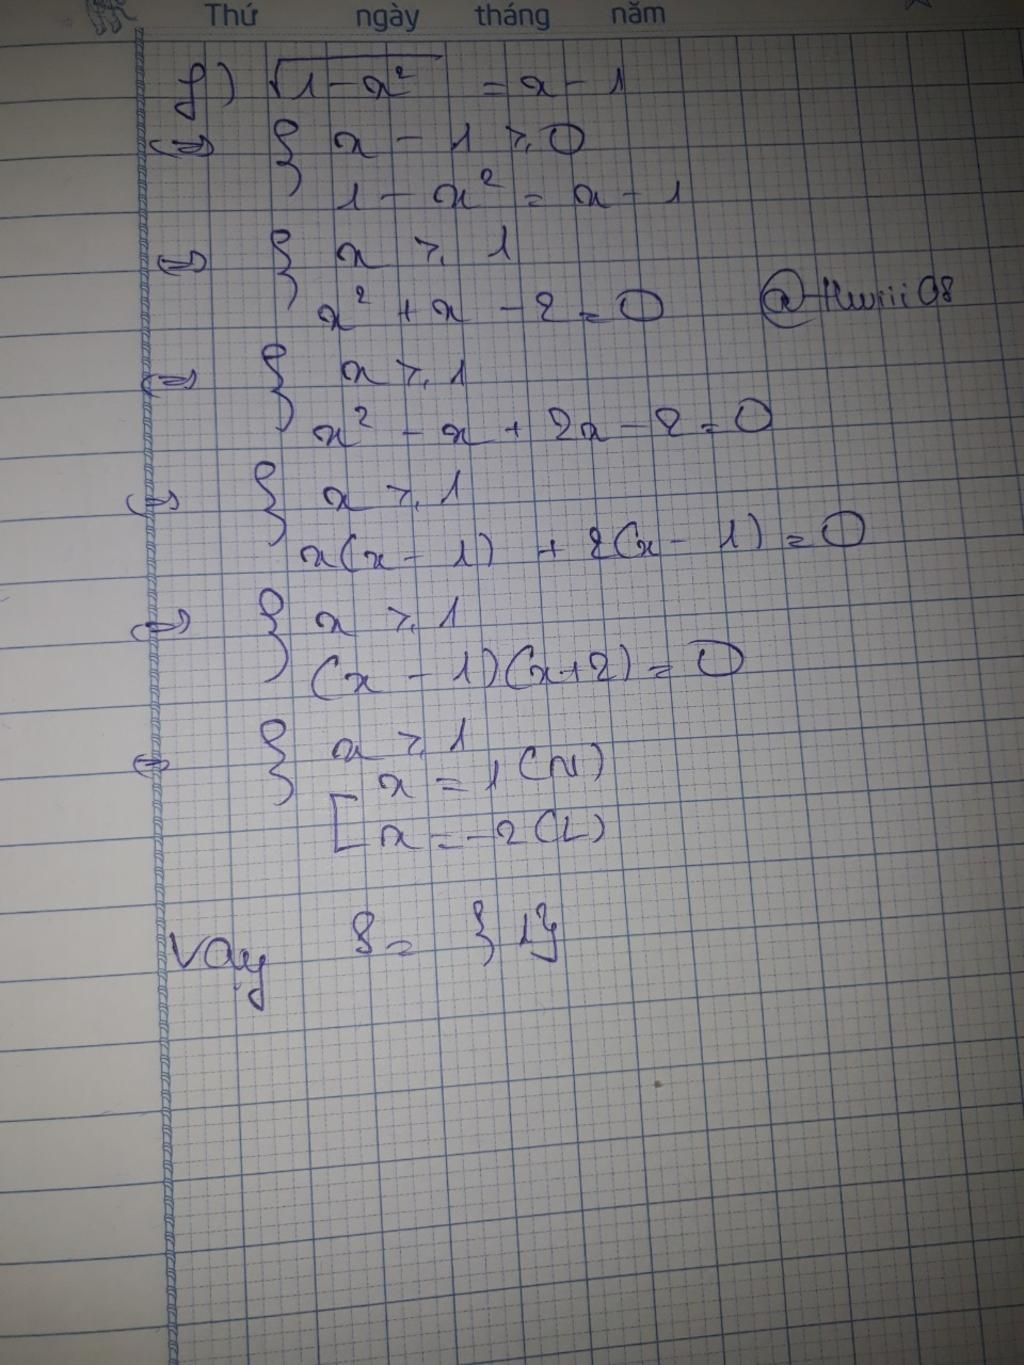 Thứ ngày tháng năm
f) √(1 - x²) = x - 1
⇔ { x - 1 ≥ 0
1 - x² = x - 1
⇔ { x ≥ 1
x² + x - 2 = 0 @Hwii08
⇔ { x ≥ 1
x² - x + 2x - 2 = 0
⇔ { x ≥ 1
x(x - 1) + 2(x - 1) = 0
⇔ { x ≥ 1
(x - 1)(x + 2) = 0
⇔ { x ≥ 1
[ x = 1 (N)
x = -2 (L)
Vậy S = {1}